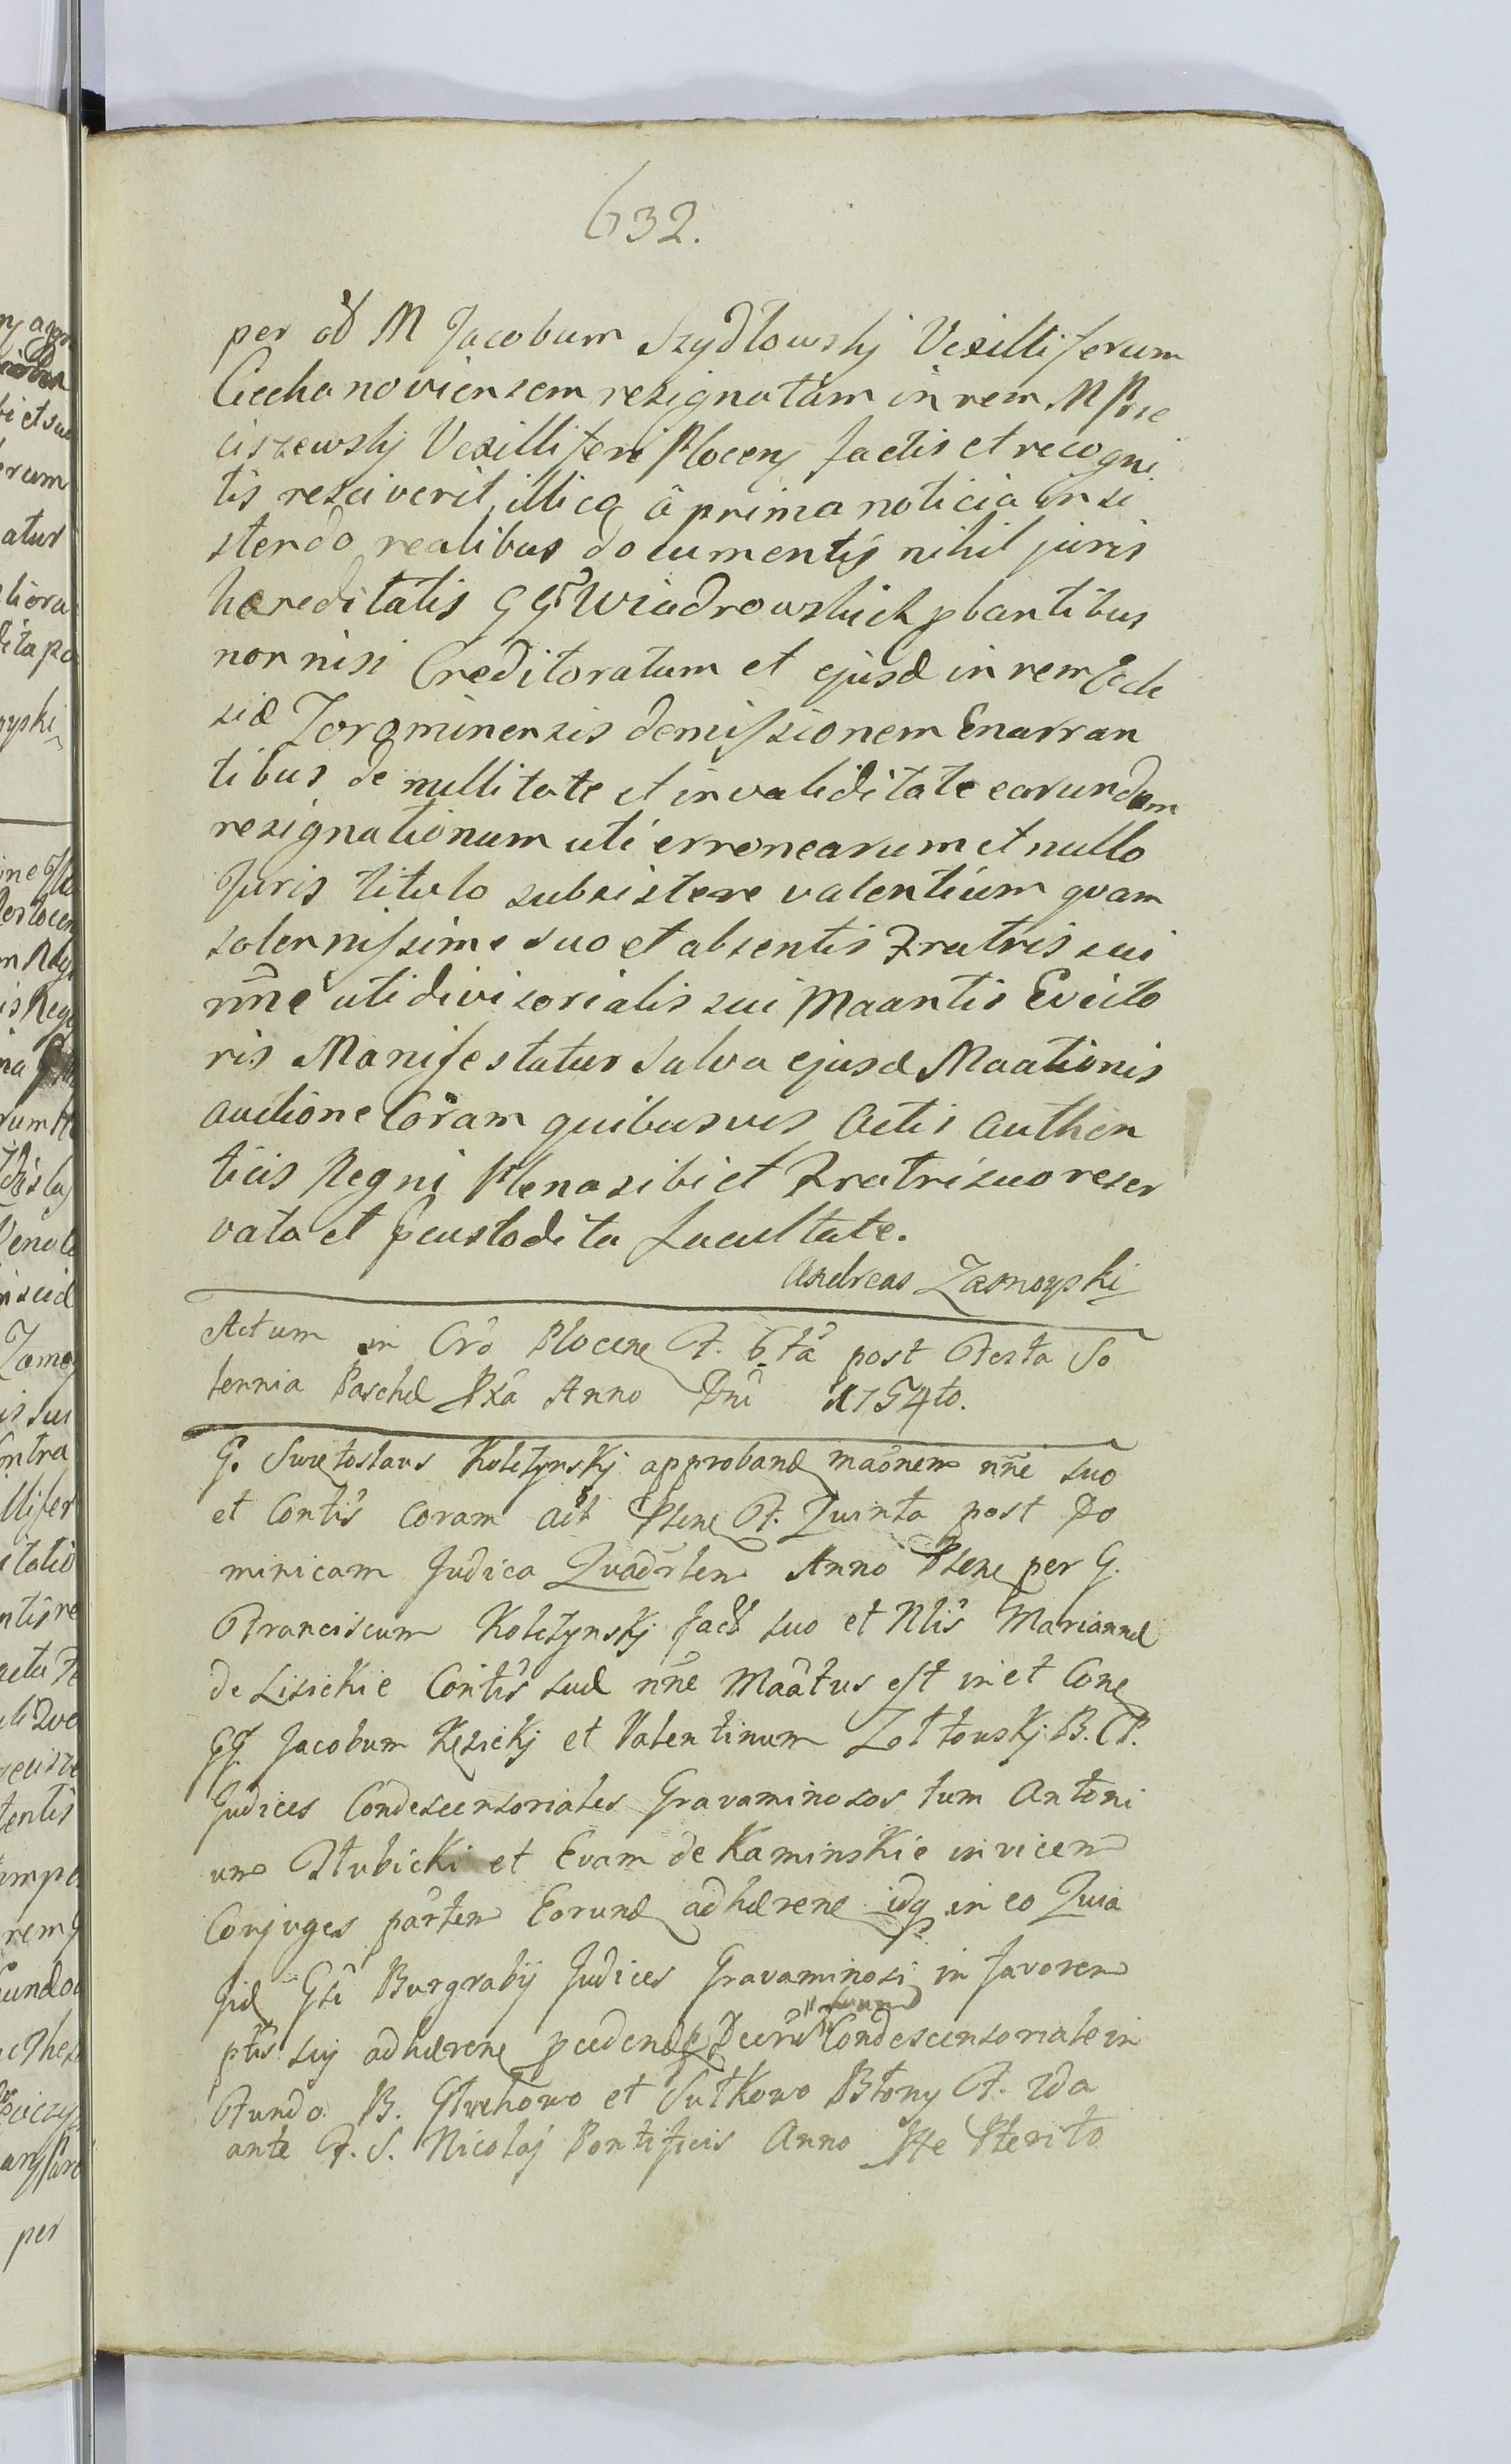 632.
per od M Jacobum Szydlowskj Vexilliferum
Ciechanoviensem resignatam in rem M Pie
ciszewskj Vexilliferi Plocenʒ factis et recogni
tis resciverit, illicq a prima noticia insi
stendo realibus documentis nihil juris
hæreditatis GG Wiadrowskich pbantibus
non nisi Creditoratum et ejusd in rem Ecle
siæ Zorominensis demissionem Enarran
tibus de nullitate et invaliditate earundem
resignationum uti erronearum et nullo
Juris titulo subsistere valentium quam
solennissime suo et absentis Fratris sui
nne uti divisorialis sui Maantis Evicto
ris Manifestatur Salva ejusd Maationis
auctione Coram quibusvis Actis Authen
ticis Regni Plena sibi et Fratri suo reser
vata et pcustodita facultate.
Andreas Zamoyski
Actum in Cro Plocen F. 6ta post Festa So
lennia Paschæ Pxa Anno Dni 1754to.
G. Swiętoslaus Kolczynskj approband maonem nne suo
et Contis coram act Pten F. Quinta post Do
minicam Judica Quadrlem Anno Pten per G.
Franciscum Kolczynskj fact suo et Nlis Mariannæ
de Lisickie Contis suæ nne Maatus est in et Con
GG. Jacobum Kęsickj et Valentinum Zołtowskj B. P.
Judices Condescensoriales Gravaminosos tum Antoni
um Słubicki et Evam de Kaminskie invicem
Conjuges partem Eorund adhæren idq in eo Quia
Jid Gsi Burgrabij Judices Gravaminosi in favorem
ptis suj adhæren pcedend Decrũ Condescensoriale in
Fundo B. Głuchowo et Sutkowo Błony F. 2da
ante F. S. Nicolaj Pontificis Anno Pte Pterito